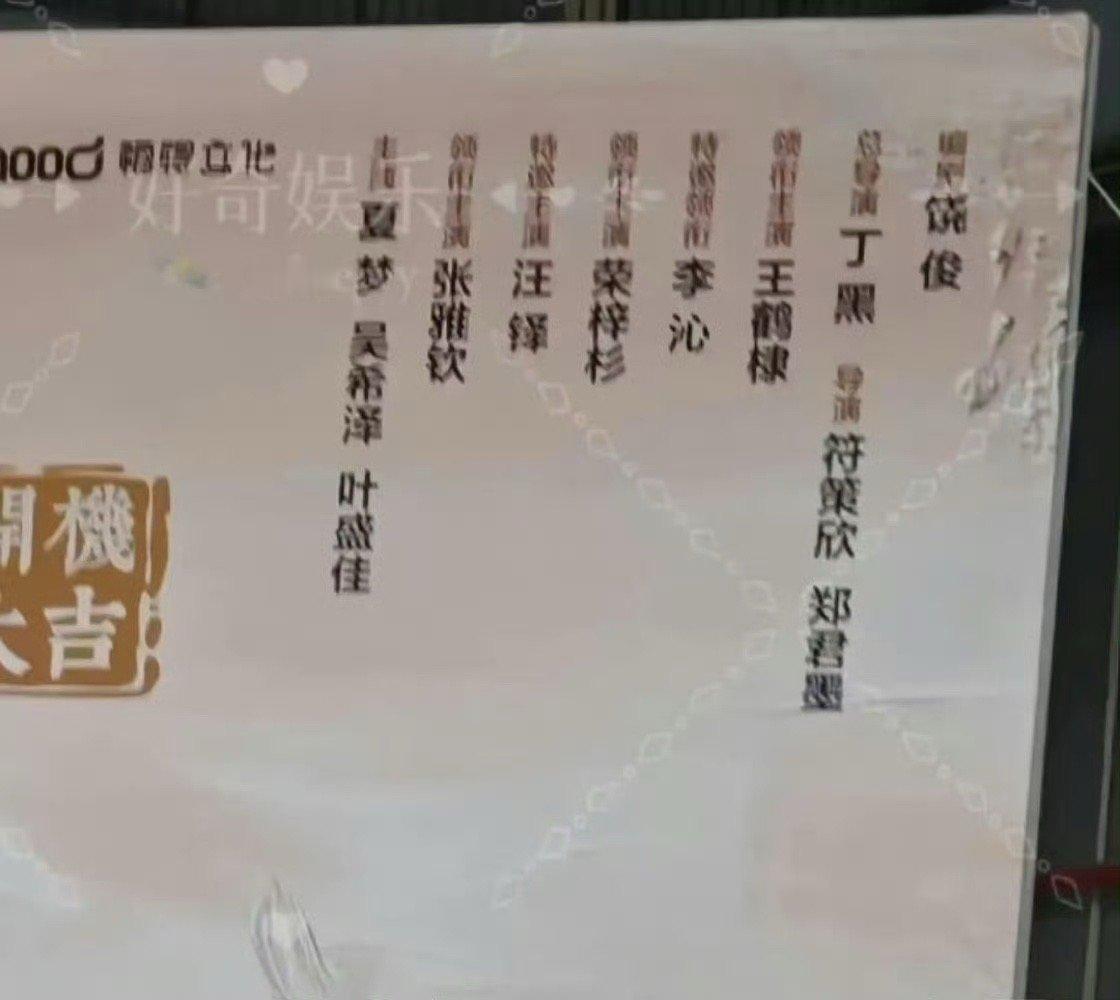 饶俊
总导演 丁黑 导演 符策欣 郑君墨
领衔主演 王鹤棣
特邀领衔 李沁
领衔主演 荣梓杉
特邀主演 汪铎
领衔主演 张雅钦
主演 夏梦 吴希泽 叶盛佳
好奇娱乐
開機
大吉